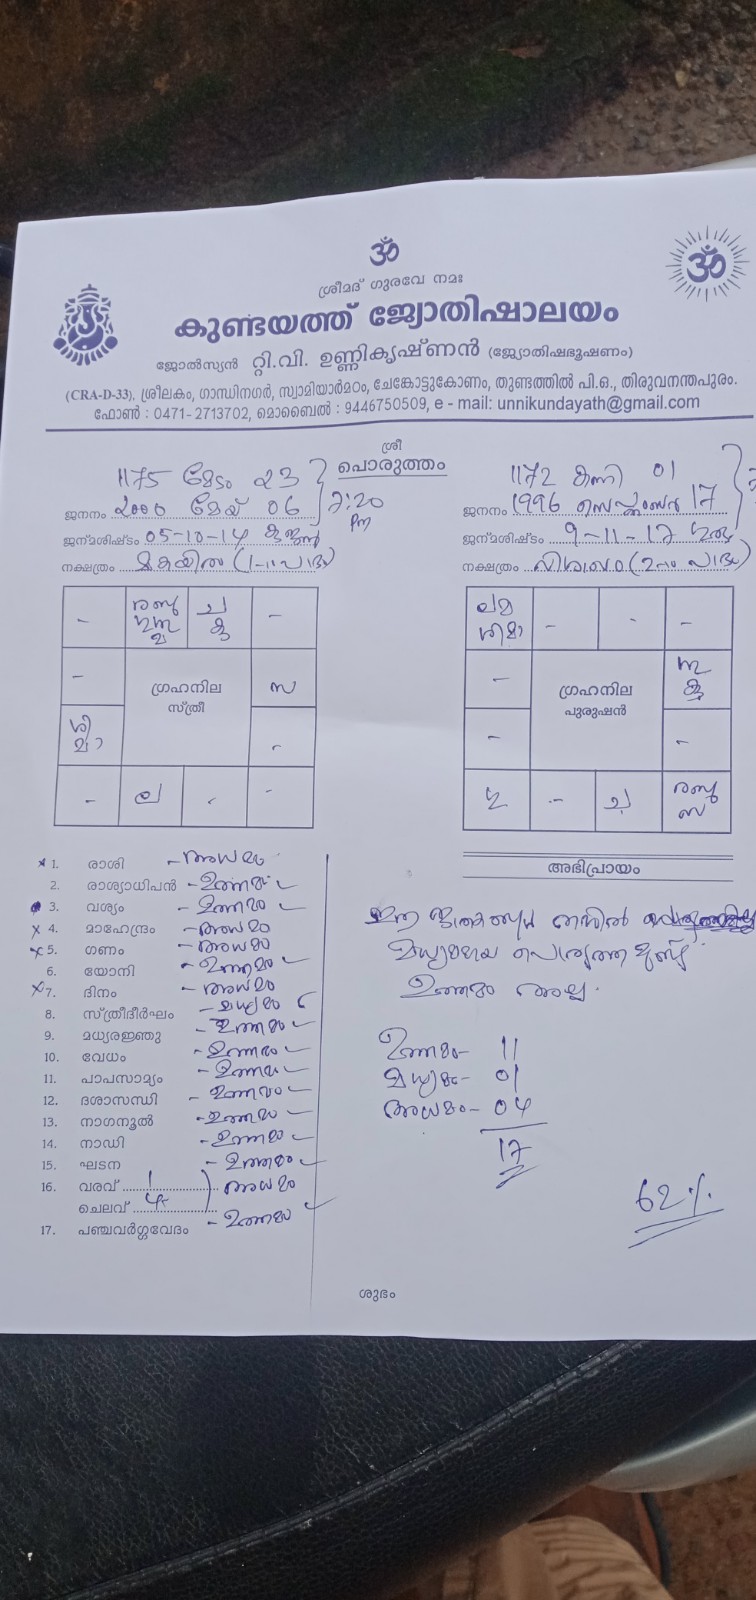 ॐ
ॐ
ശ്രീമദ് ഗുരവേ നമഃ
കുണ്ടയത്ത് ജ്യോതിഷാലയം
ജോൽസ്യൻ റ്റി.വി. ഉണ്ണികൃഷ്ണൻ (ജ്യോതിഷഭൂഷണം)
(CRA-D-33), ശ്രീലകം, ഗാന്ധിനഗർ, സ്വാമിയാർമഠം, ചേങ്കോട്ടുകോണം, തുണ്ടത്തിൽ പി.ഒ., തിരുവനന്തപുരം.
ഫോൺ : 0471- 2713702, മൊബൈൽ : 9446750509, e - mail: unnikundayath@gmail.com
ശ്രീ
പൊരുത്തം
1175 മേടം 23
ജനനം 2000 മേയ് 06
2:20 Pm
ജന്മശിഷ്ടം 05-10-14 കുജൻ
നക്ഷത്രം മകയിരം (1-ാം പാദം)
1172 കന്നി 01
ജനനം 1996 സെപ്റ്റംബർ 17
ജന്മശിഷ്ടം 9-11-17 ഗുരു
നക്ഷത്രം വിശാഖം (2-ാം പാദം)
ച
കു
-
-
സ
ശി
മാ
-
ല
-
-
ഗ്രഹനില
സ്ത്രീ
ലമ
ശിമാ
-
-
-
-
-
-
-
ഗ്രഹനില
പുരുഷൻ
1. രാശി - അധമം
2. രാശ്യാധിപൻ - ഉത്തമം
3. വശ്യം - ഉത്തമം
x 4. മാഹേന്ദ്രം - അധമം
x 5. ഗണം - അധമം
6. യോനി - ഉത്തമം
x 7. ദിനം - അധമം
8. സ്ത്രീദീർഘം - മധ്യമം
9. മധ്യരജ്ജു - ഉത്തമം
10. വേധം - ഉത്തമം
11. പാപസാമ്യം - ഉത്തമം
12. ദശാസന്ധി - ഉത്തമം
13. നാഗനൂൽ - ഉത്തമം
14. നാഡി - ഉത്തമം
15. ഘടന - ഉത്തമം
16. വരവ് 1
ചെലവ് 4 അധമം
17. പഞ്ചവർഗ്ഗവേദം - ഉത്തമം
അഭിപ്രായം
ഈ തമ്മിൽ
മധ്യമമായ പൊരുത്തമുണ്ട്.
ഉത്തമം അല്ല.
ഉത്തമം - 11
മധ്യമം - 01
അധമം - 04
17
62%
ശുഭം